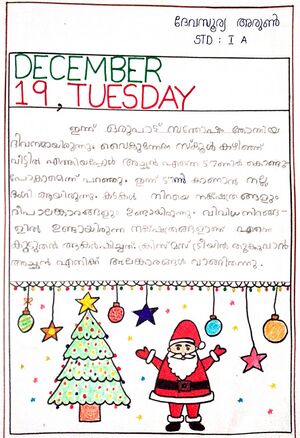 ദേവസൂര്യ അരുൺ
STD : I A
DECEMBER
19, TUESDAY
ഇന്ന് ഒരുപാട് സന്തോഷം തോന്നിയ
ദിവസമായിരുന്നു. വൈകുന്നേരം സ്കൂൾ കഴിഞ്ഞ്
വീട്ടിൽ എത്തിയപ്പോൾ അച്ഛൻ എന്നെ ടൗണിൽ കൊണ്ടു
പോകാമെന്ന് പറഞ്ഞു. ഇന്ന് ടൗൺ കാണാൻ നല്ല
ഭംഗി ആയിരുന്നു. കടകൾ നിറയെ നക്ഷത്രങ്ങളും
ദീപാലങ്കാരങ്ങളും ഉണ്ടായിരുന്നു. വിവിധ നിറങ്ങ-
ളിൽ ഉണ്ടായിരുന്ന നക്ഷത്രങ്ങളാണ് എന്നെ
കൂടുതൽ ആകർഷിച്ചത്. ക്രിസ്മസ് ട്രീയിൽ തൂക്കുവാൻ
അച്ഛൻ എനിക്ക് അലങ്കാരങ്ങൾ വാങ്ങിതന്നു.